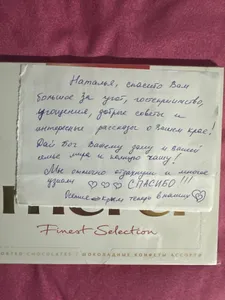 Наталья, спасибо Вам
большое за уют, гостеприимство,
угощения, добрые советы и
интересные рассказы о Вашем крае!
Дай Бог Вашему дому и Вашей
семье мира и полную чашу!
Мы отлично отдохнули и многое
узнали ♡♡♡ СПАСИБО!!!
merci
Finest Selection
ASSORTED CHOCOLATES • ШОКОЛАДНЫЕ КОНФЕТЫ АССОРТИ